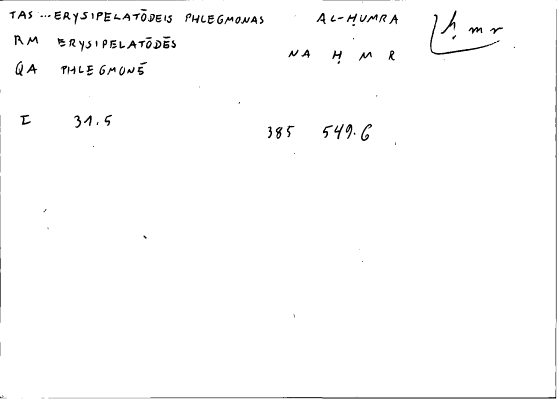 TAS ... ERYSIPELATŌDEIS PHLEGMONAS AL-ḤUMRA ḥ m r
RM ERYSIPELATŌDĒS NA Ḥ M R
QA PHLEGMONĒ
I 31.5 385 549.6